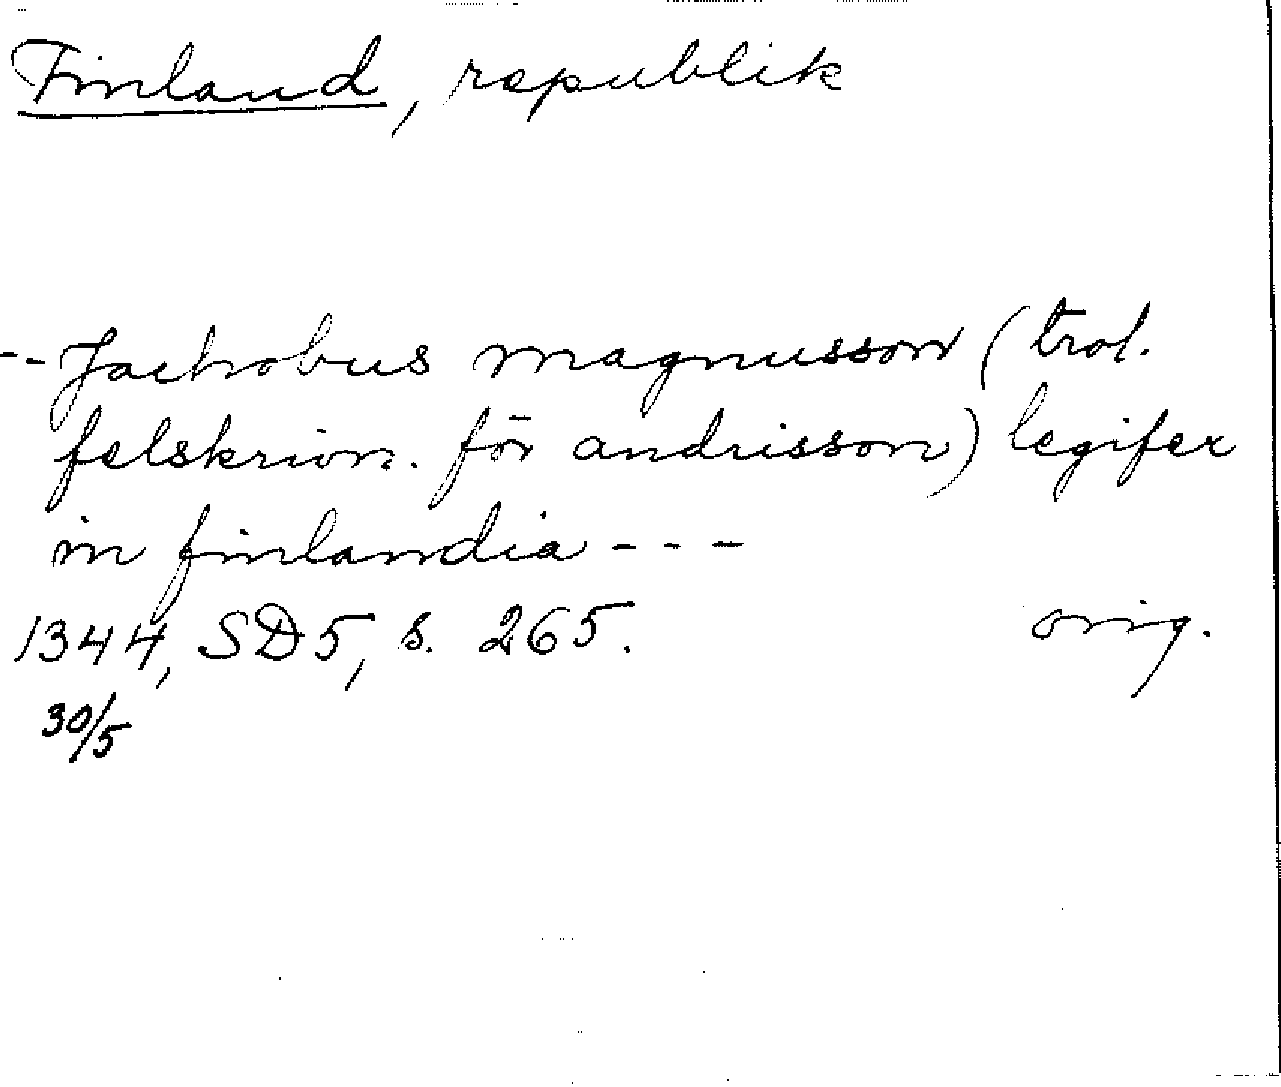 Finland, republik
-- Jachobus magnusson (trol.
felskrivn. för andrisson) legifer
in finlandia - - -
1344, SD5, s. 265. orig.
30/5